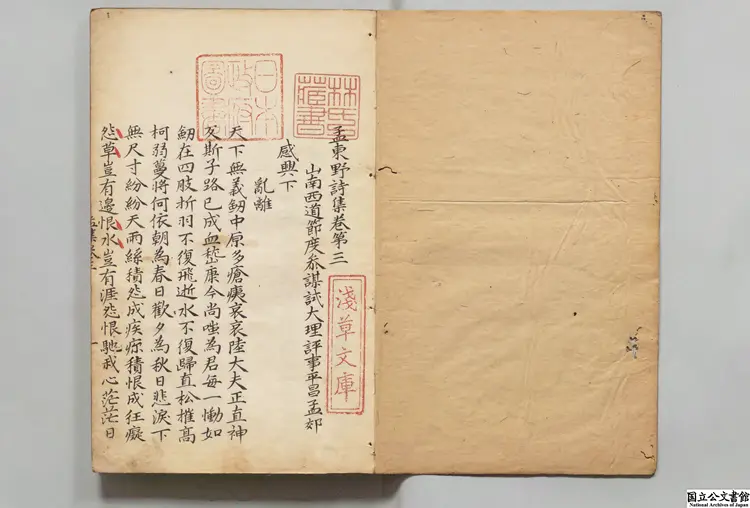 林氏藏書
日本政府圖書
淺草文庫
孟東野詩集卷第三
山南西道節度叅謀試大理評事平昌孟郊
感興下
亂離
天下無義釼中原多瘡痍哀哀陸大夫正直神
反斯子路已成血嵇康今尚嗤為君每一慟如
釼在四肢折羽不復飛逝水不復歸直松摧高
柯弱蔓將何依朝為春日歡夕為秋日悲淚下
無尺寸紛紛天雨絲積怨成疾疹積恨成狂癡
怨草豈有邊恨水豈有涯怨恨馳我心茫茫日
孟集卷三 一
国立公文書館
National Archives of Japan